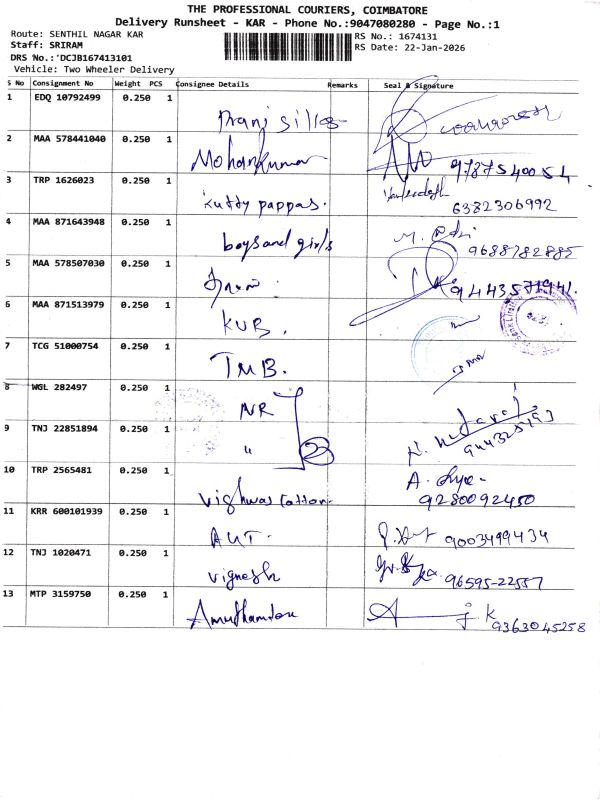 THE PROFESSIONAL COURIERS, COIMBATORE
Delivery Runsheet - KAR - Phone No.:9047080280 - Page No.:1
Route: SENTHIL NAGAR KAR
Staff: SRIRAM
DRS No.:'DCJB167413101
Vehicle: Two Wheeler Delivery
RS No.: 1674131
RS Date: 22-Jan-2026
S No Consignment No Weight PCS Consignee Details Remarks Seal & Signature
1 EDQ 10792499 0.250 1
2 MAA 578441040 0.250 1 Mohankumar 9787540054
3 TRP 1626023 0.250 1 kutty pappas. 6382306992
4 MAA 871643948 0.250 1 boys and girls 9688782885
5 MAA 578507030 0.250 1
6 MAA 871513979 0.250 1 KVB.
7 TCG 51000754 0.250 1 TMB.
8 WGL 282497 0.250 1 NR
9 TNJ 22851894 0.250 1 "
10 TRP 2565481 0.250 1 Vighwas Cotton. 9280092450
11 KRR 600101939 0.250 1 AUT. 9003499434
12 TNJ 1020471 0.250 1 Vignesh 96595-22557
13 MTP 3159750 0.250 1 9363045258